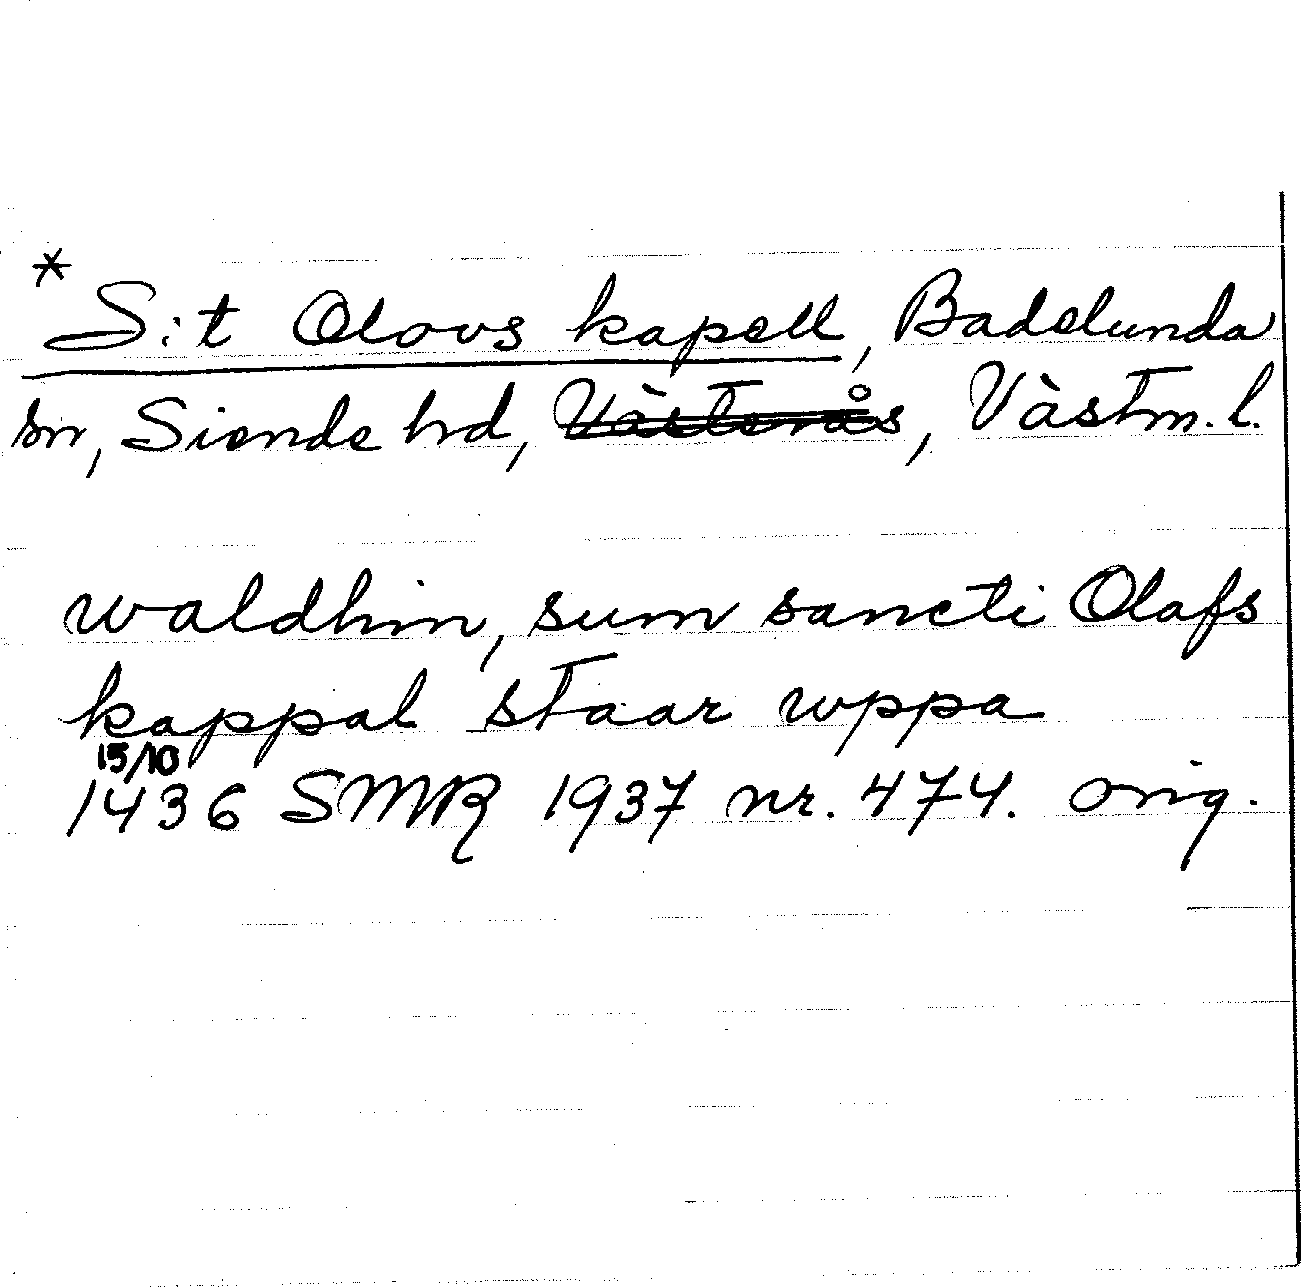 *
S:t Olovs kapell, Badelunda
sn, Siende hd, Västerås, Västm. l.
waldhin, sum sancti Olafs
kappal staar wppa
15/10
1436 SMR 1937 nr. 474. orig.